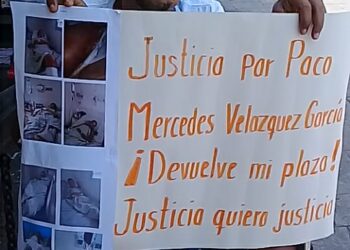 Justicia por Paco
Mercedes Velazquez García
¡Devuelve mi plaza!
Justicia quiero justicia